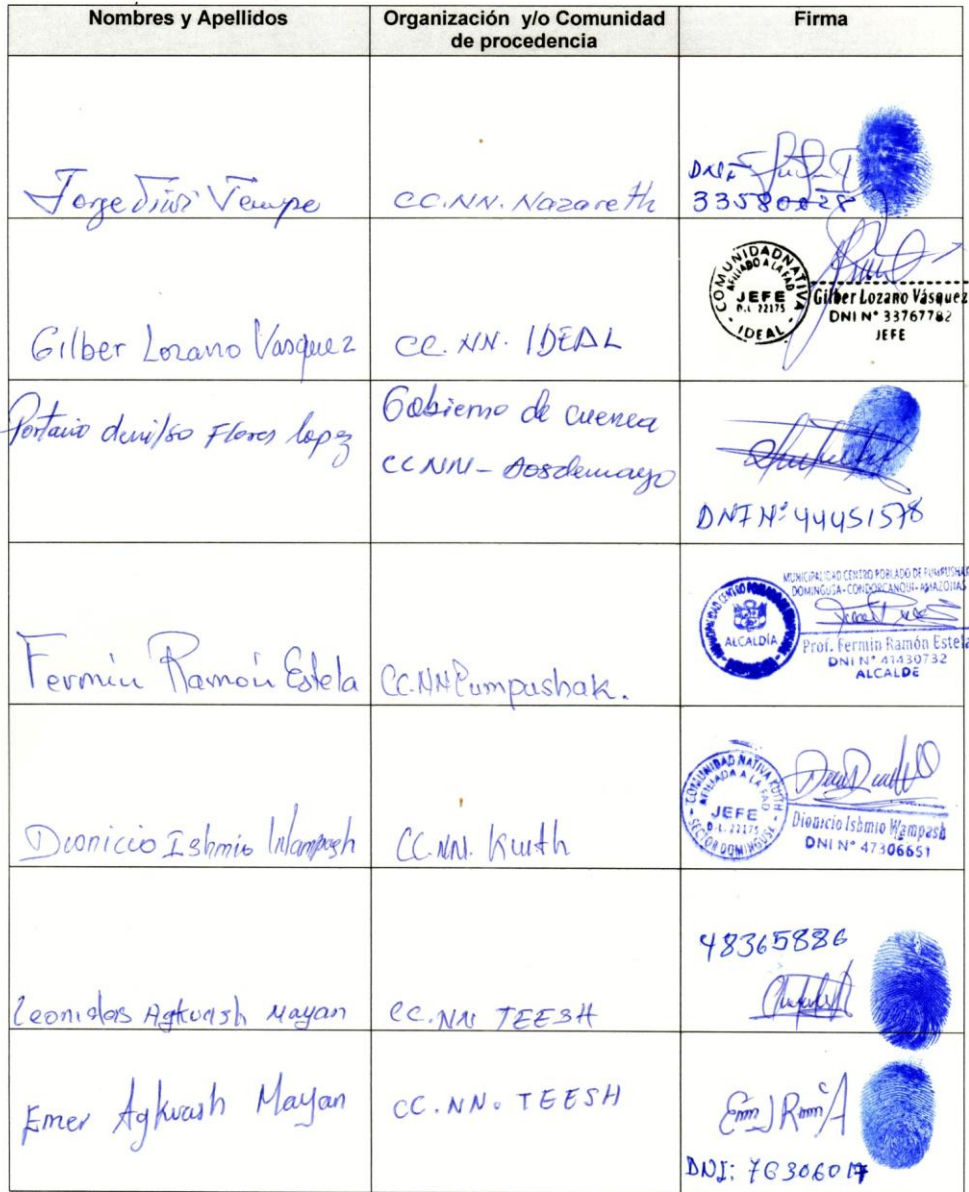 Nombres y Apellidos
Organización y/o Comunidad
de procedencia
Firma
Jorge Tiwi Tempe
CC.NN. Nazareth
DNI:
33580028
Gilber Lozano Vasquez
CC. NN. IDEAL
COMUNIDAD NATIVA
AFILIADO A LA FAD
JEFE
D.L. 22175
IDEAL
Gilber Lozano Vásquez
DNI N° 33767782
JEFE
Portano denilso Flores lopez
Gobierno de cuenca
CCNN-dosdemayo
DNI Nº 44451578
Fermin Ramón Estela
CC.NN Pumpushak.
ALCALDÍA
MUNICIPALIDAD CENTRO POBLADO DE PUMPUSHAK
DOMINGUSA - CONDORCANQUI - AMAZONAS
Prof. Fermin Ramón Estela
DNI N° 41430732
ALCALDE
Dionicio Ishmio Wampash
CC.NN. Kuith
COMUNIDAD NATIVA KUITH
AFILIADA A LA FAD
JEFE
D.L. 22175
SECTOR DOMINGUSA
Dionicio Ishmio Wampash
DNI N° 47306651
Leonidas Agkuash Mayan
CC.NN TEESH
48365886
Emer Agkuash Mayan
CC.NN. TEESH
DNI: 76306017